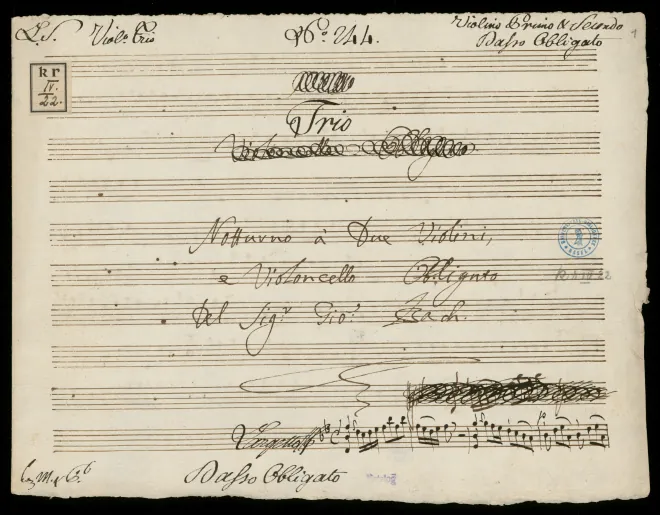 L.S. Viol: Trio
No. 244.
Violino Primo & Secondo
Basso Obligato
1
kr
IV.
22.
Trio
Notturno à Due Violini,
e Violoncello Obligato
Del Sigr Gio: Bach.
Basso Obligato